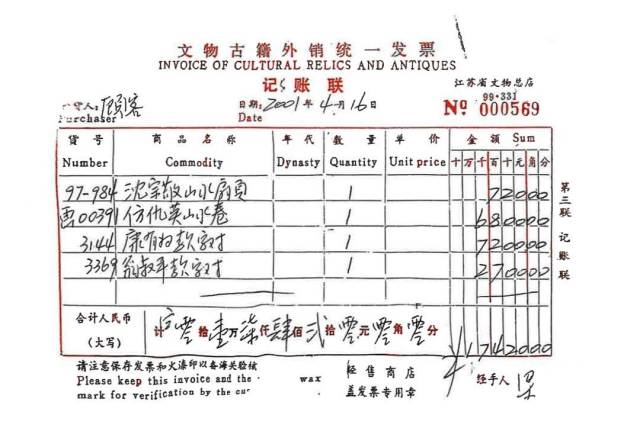 文物古籍外销统一发票
INVOICE OF CULTURAL RELICS AND ANTIQUES
记账联
江苏省文物总店
99·331
货人：顾客 日期：2001年4月16日 № 000569
Purchaser Date
货号 商品名称 年代 数量 单价 金额 Sum
Number Commodity Dynasty Quantity Unit price 十万千百十元角分
97-984 沈宗敬山水扇页 1 72000
00391 仿仇英山水卷 1 680000
3144 康有为款字对 1 720000
3369 翁叔平款字对 1 270000
第三联 记账联
合计人民币 计零拾壹万柒仟肆佰贰拾零元零角零分 ¥1742000
（大写）
请注意保存发票和火漆印以备海关验核 经售商店 经手人
Please keep this invoice and the wax 盖发票专用章
mark for verification by the